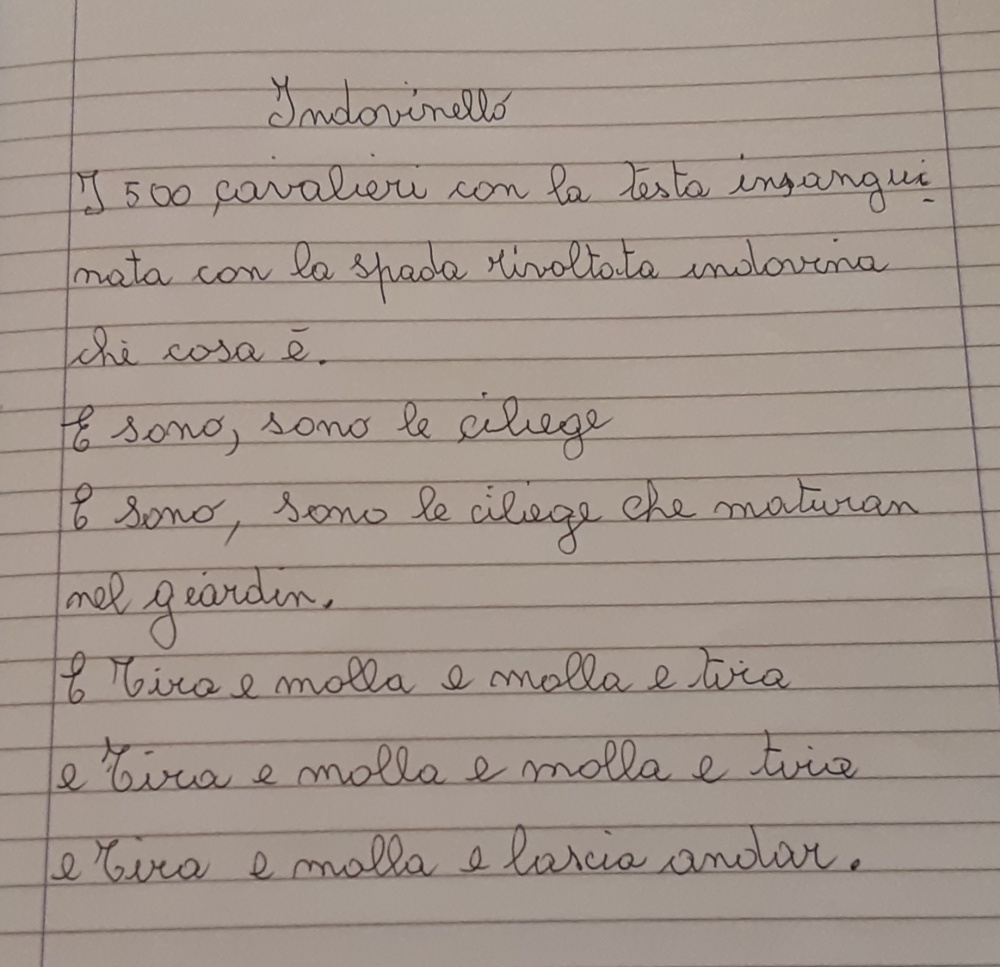 Indovinello
I 500 cavalieri con la testa insangui
nata con la spada rivoltata indovina
chi cosa è.
E sono, sono le ciliege
E sono, sono le ciliege che maturan
nel giardin.
E Tira e molla e molla e tira
e Tira e molla e molla e tira
e Tira e molla e lascia andar.